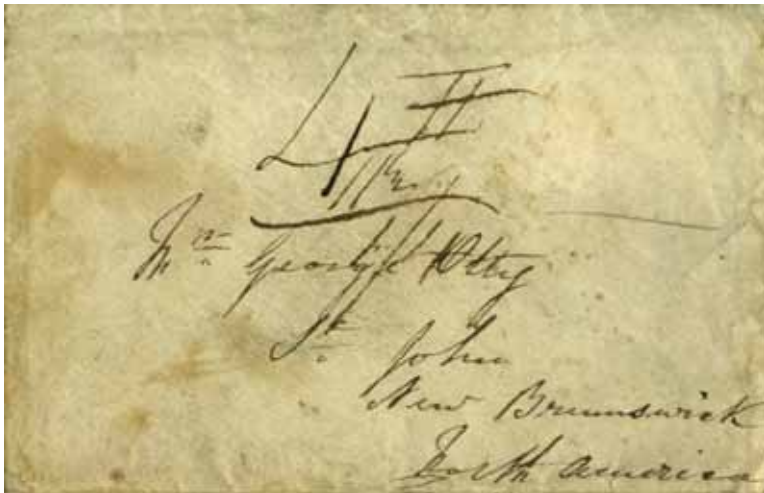 4
Mr George Otty
St John
New Brunswick
North America